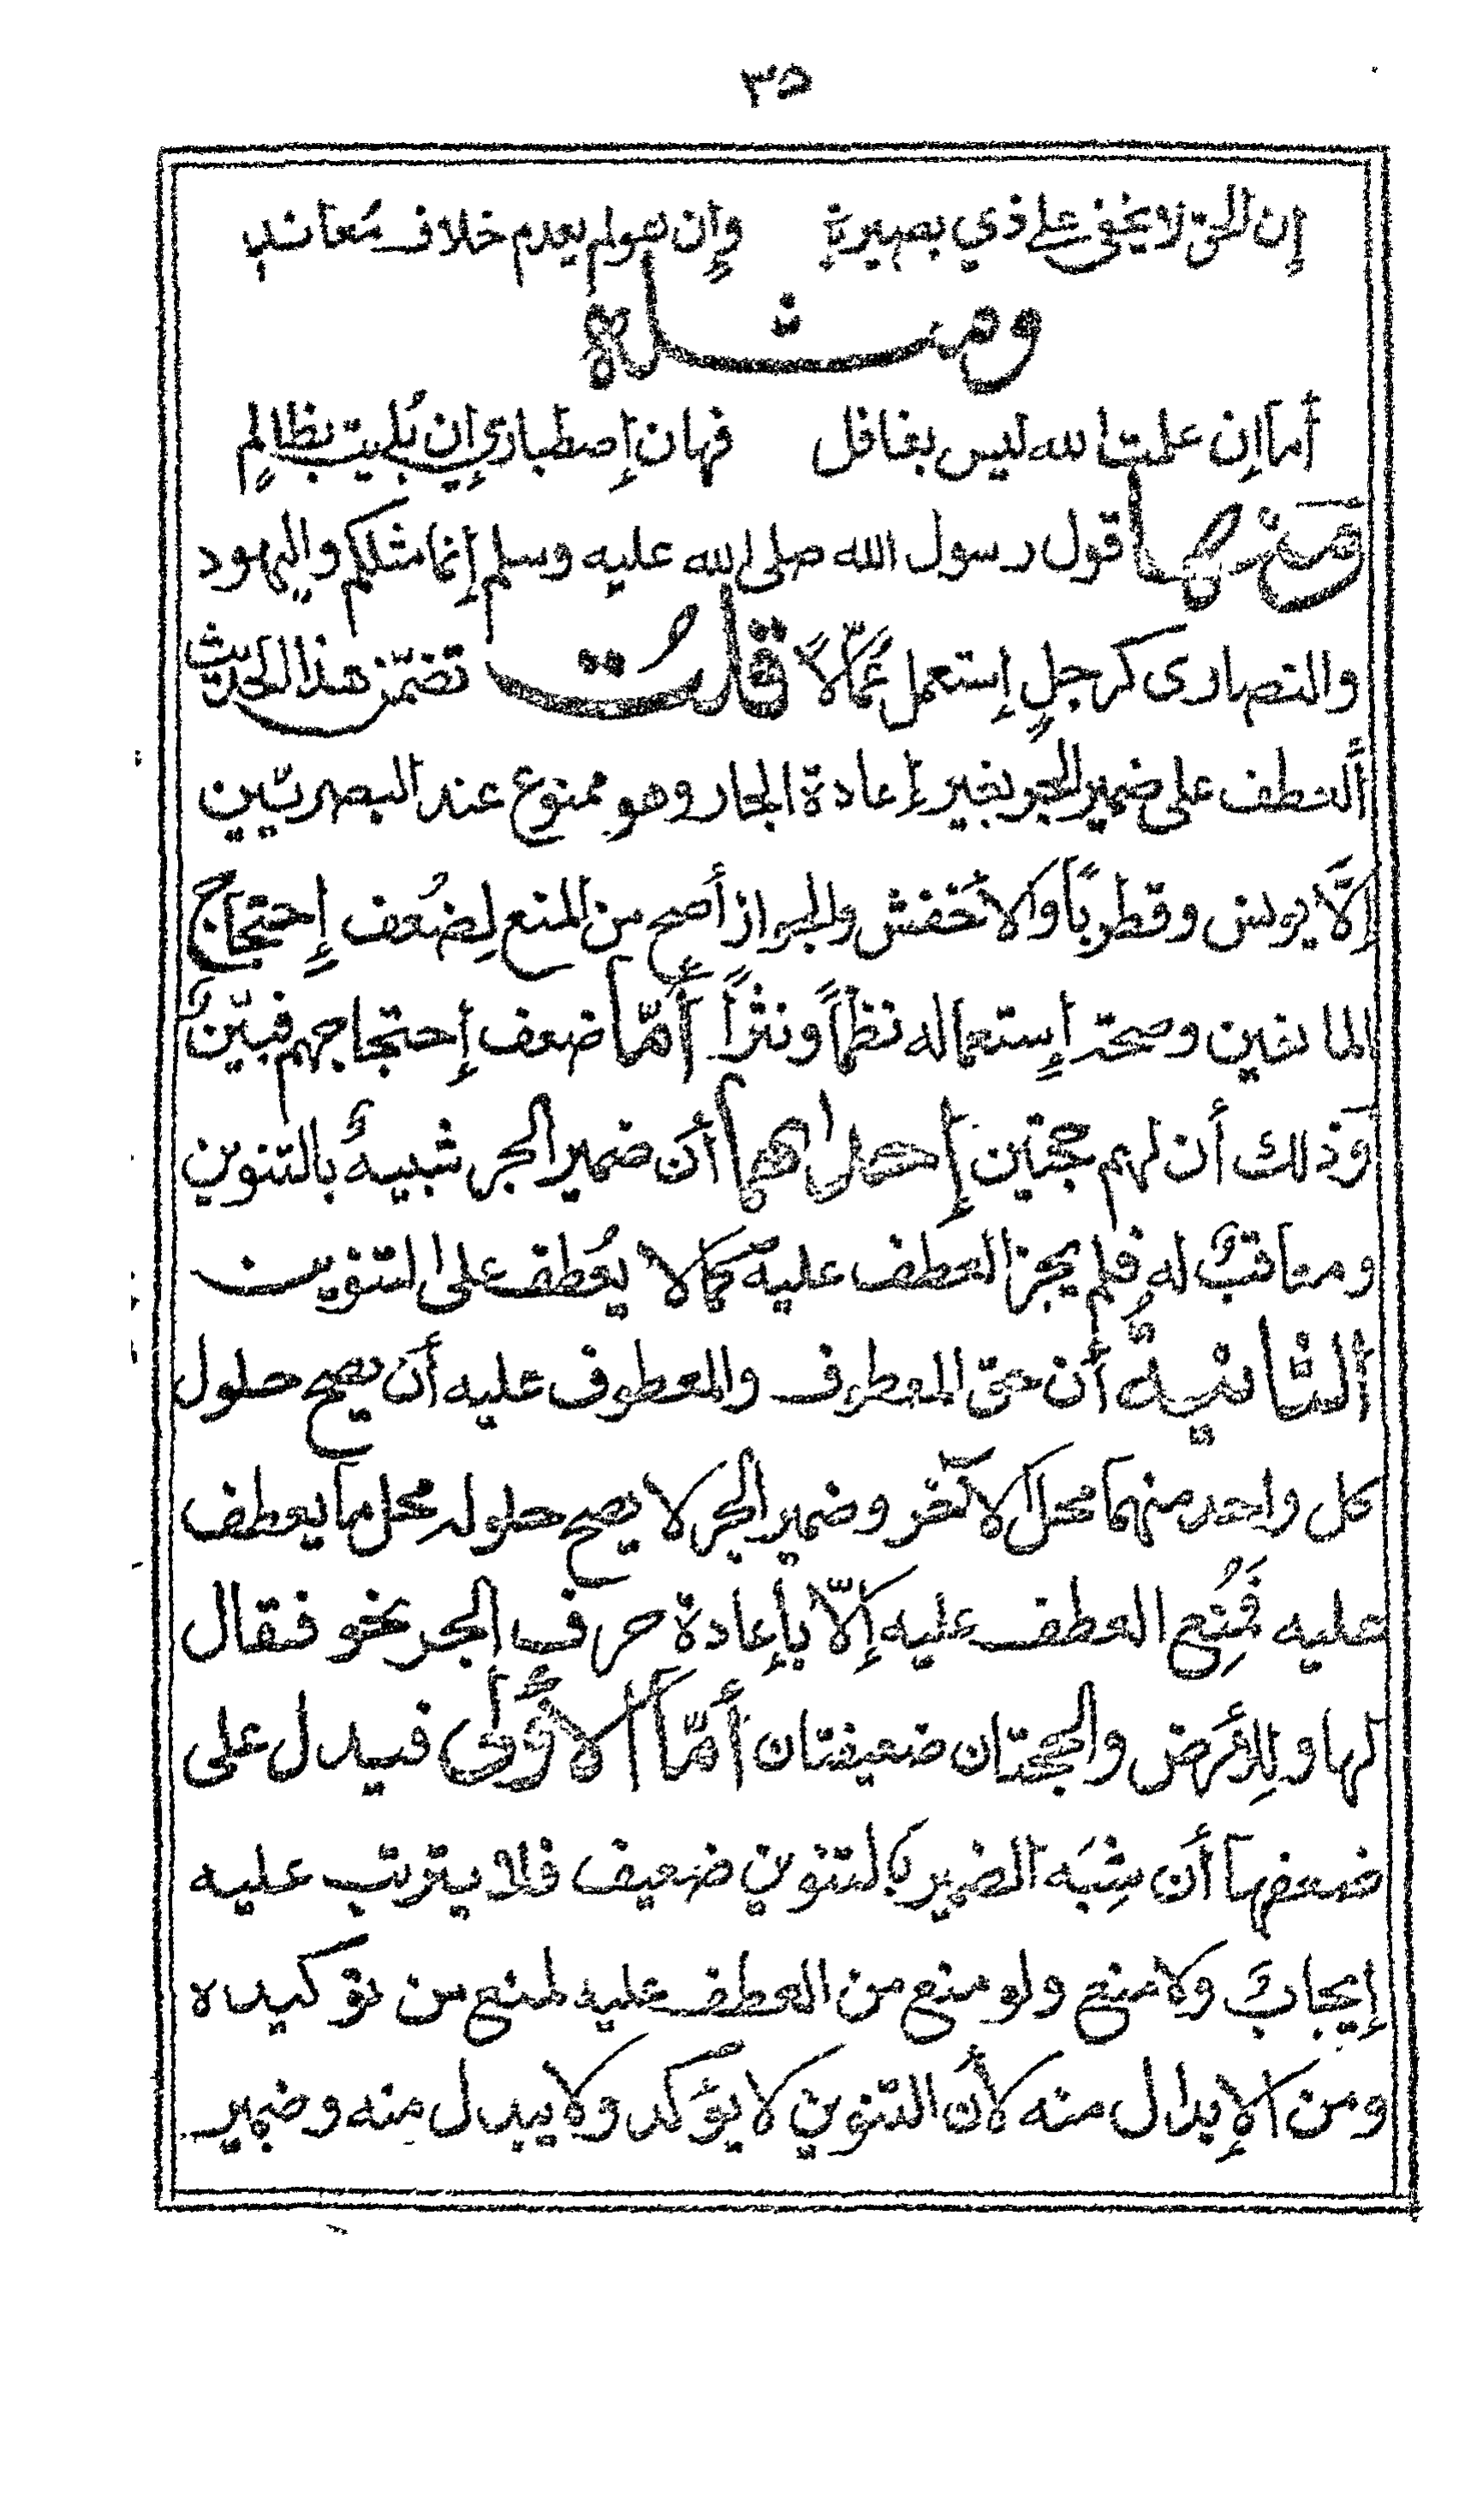 ٣٥
إن الحق لا يخفى على ذي بصيرةٍ وإن هو لم يعدم خلاف مُعاندٍ
ومثله
أما إن علمت الله ليس بغافل فهان إصطباري إن بُليت بظالمٍ
ومنها قول رسول الله صلى الله عليه وسلم إنما مثلكم واليهود
والنصارى كرجلٍ إستعمل عمّالاً قلت تضمّن هذا الحديث
ألعطف على ضمير الجر بغير إعادة الجار وهو ممنوع عند البصريّين
إلّا يونس وقطرباً والأخفش والجواز أصح من المنع لِضُعف إحتجاج
المانعين وصحة إستعماله نظماً ونثراً أمّا ضعف إحتجاجهم فبيّنٌ
وذلك أن لهم حجتين إحداهما أن ضمير الجر شبيهٌ بالتنوين
ومعاقبٌ له فلم يجز العطف عليه كما لا يُعطف على التنوين
الثانيةُ أن حق المعطوف والمعطوف عليه أن يصح حلول
كل واحد منهما محل الآخر وضمير الجر لا يصح حلوله محل ما يعطف
عليه فَمُنِع العطف عليه إلّا بإعادة حرف الجر نحو فقال
لها وللأرض والحجتان ضعيفتان أمّا الأُولى فيدل على
ضعفها أن شِبَه الضمير بالتنوين ضعيف فلا يترتب عليه
إيجابٌ ولا منع ولو منع من العطف عليه لمنع من توكيده
ومن الإبدال منه لأن التنوين لا يؤكد ولا يبدل منه وضمير